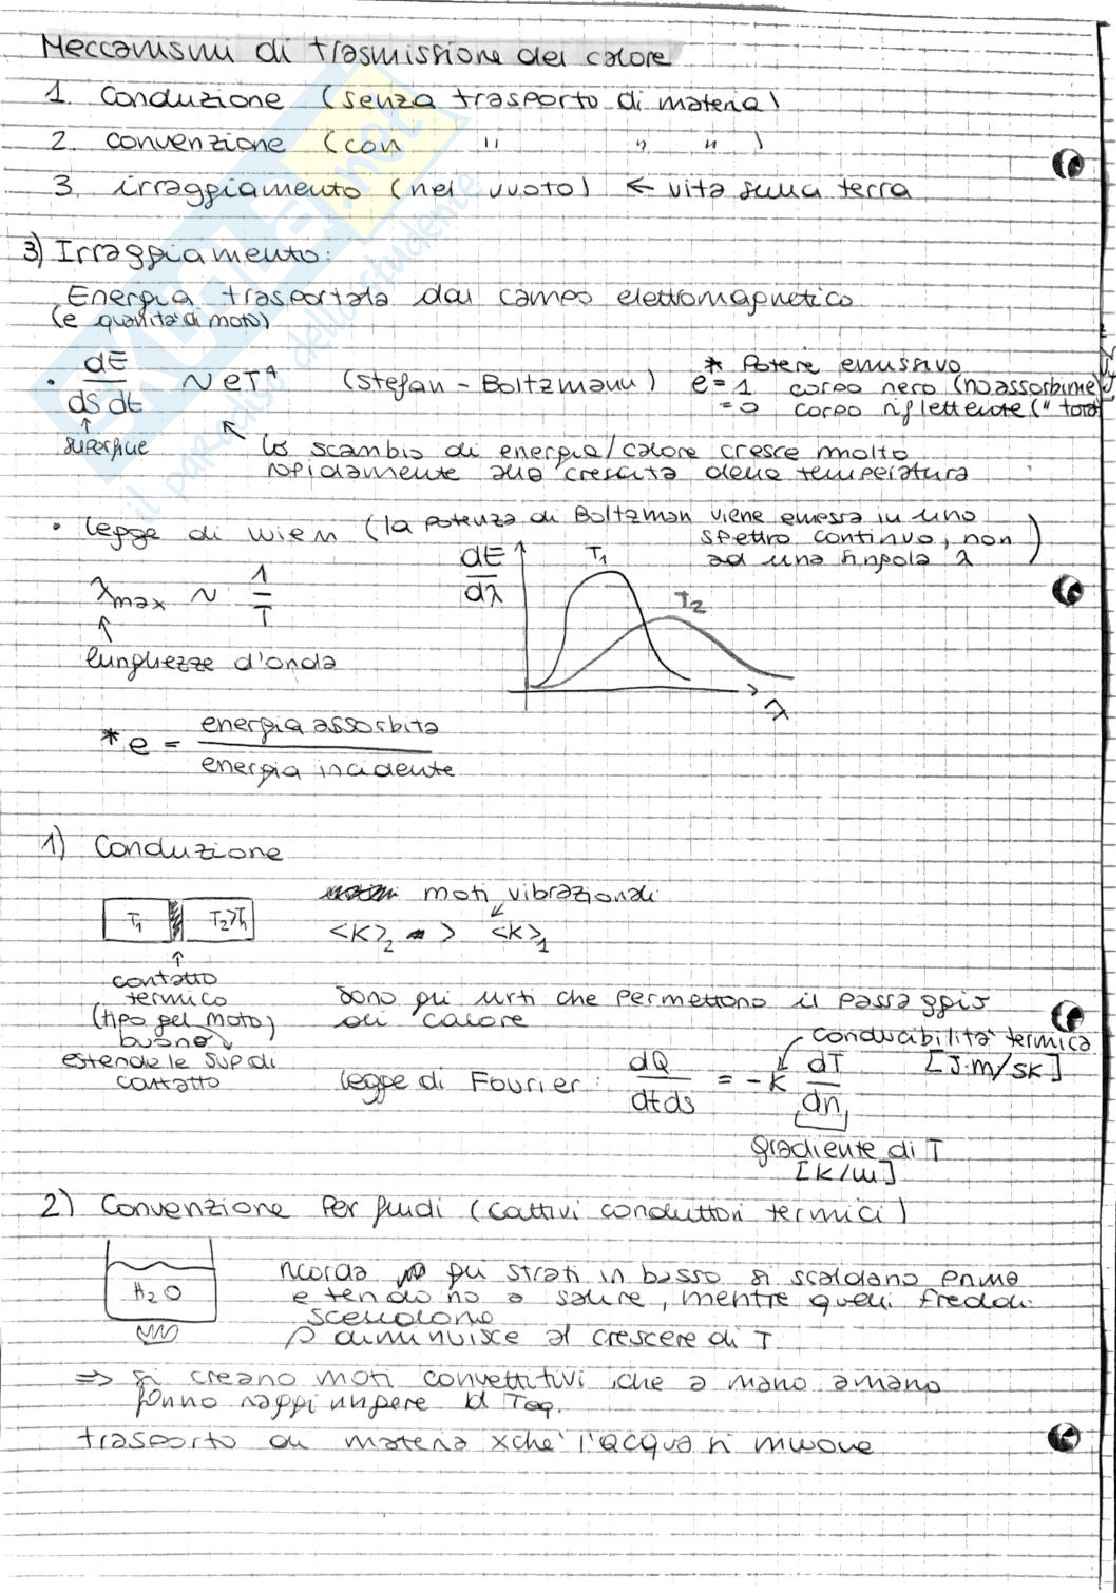 Meccanismi di trasmissione del calore
1. Conduzione (senza trasporto di materia)
2. Convenzione (con " " " )
3. irraggiamento (nel vuoto) ← vita sulla terra
3) Irraggiamento:
Energia trasportata dal campo elettromagnetico
(e quantità di moto)
• dE/dsdt ~ eT⁴ (Stefan-Boltzmann)
* Potere emissivo
e = 1 corpo nero (no assorbime
= 0 corpo riflettente (" tota
↑ superficie
↖ Lo scambio di energia/calore cresce molto
rapidamente alla crescita della temperatura
• Legge di Wien (la potenza di Boltzman viene emessa in uno
spettro continuo, non
ad una singola λ)
λmax ~ 1/T
↑
lunghezze d'onda
dE/dλ
T₁
T₂
λ
* e = energia assorbita / energia incidente
1) Conduzione
T₁ T₂>T₁
moti vibrazionali
<K>₂ > <K>₁
↑
contatto
termico
(tipo gel moto)
buono ↓
estende le sup di
contatto
Sono gli urti che permettono il passaggio
di calore
conducibilità termica
[J·m/sK]
Legge di Fourier: dQ/dtds = -K dT/dn
gradiente di T
[K/m]
2) Convenzione Per fluidi (cattivi conduttori termici)
H₂O
ricorda gli strati in basso si scaldano prima
e tendono a salire, mentre quelli freddi
scendono
ρ diminuisce al crescere di T
⇒ si creano moti convettitivi che a mano a mano
fanno raggiungere la Teq.
trasporto di materia xchè l'acqua si muove
il paradiso dello studente